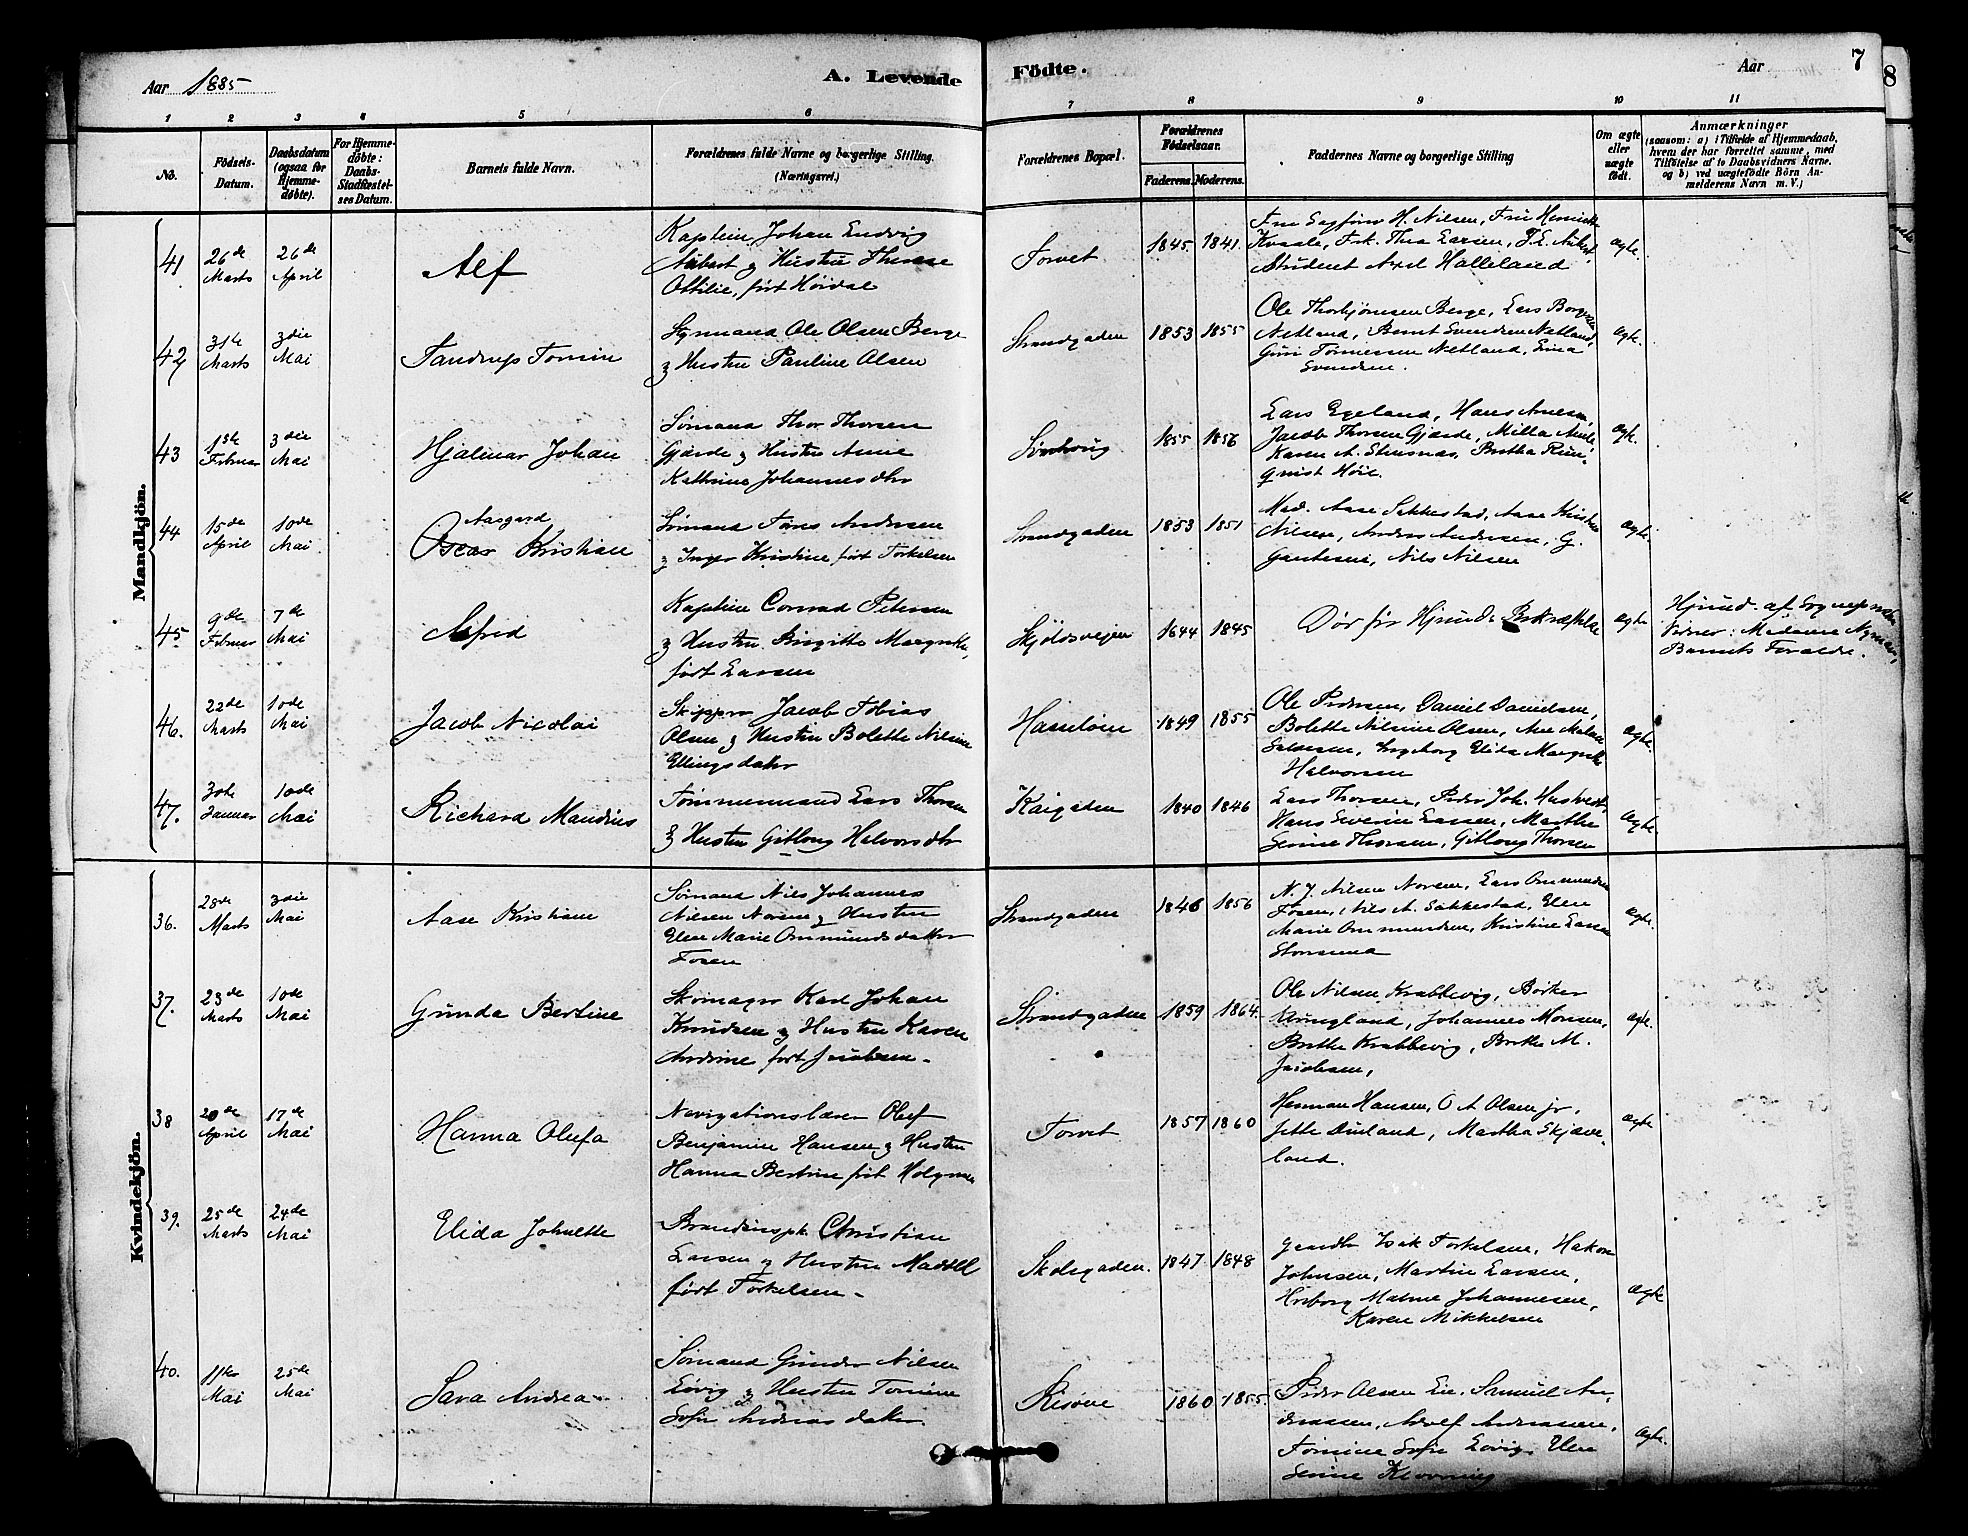 Aar 1885
A. Levende
Födte.
Aar
7
8
1 2 3 4 5 6 7 8 9 10 11
No.
Födsels-
Datum.
Daabsdatum
(ogsaa for
Hjemme-
døbte).
For Hjemme-
døbte:
Daabs-
Stadfæstel-
ses Datum.
Barnets fulde Navn.
Forældrenes fulde Navne og borgerlige Stilling.
(Næringsvei.)
Forældrenes Bopæl.
Forældrenes
Födselsaar.
Faderens. Moderens.
Faddernes Navne og borgerlige Stilling
Om ægte
eller
uægte
födt.
Anmærkninger
(saasom: a) i Tilfælde af Hjemmedaab,
hvem der har forrettet samme, med
Tilföielse af to Daabsvidners Navne,
og b) ved uægtefödte Börn An-
melderens Navn m. V.)
Mandkjön.
41
26de
Marts
26de
April
Alf
Kaptein Johan Ludvig
og Hustru Therese
Ottilie, født Høidal
Torvet
1845 1841.
Fru Sagfører H. Nilsen, Fru Henriette
Kvaale, Frk. Thea Larsen,
Student Axel Halleland
Ægte.
42
31te
Marts
3die
Mai
Tandrup Tomin
Styrmand Ole Olsen Berge
og Hustru Pauline Olsen
Strandgaden
1853 1855
Ole Thorbjørnsen Berge, Lars
Netland, Bernt Svendsen Netland,
Guri Tønnessen Netland,
Svendsen.
Ægte.
43
1ste
Februar
3die
Mai
Hjalmar Johan
Sømand Thor Thorsen
Gjærde og Hustru Anne
Kathrine Johannesdtr
Sørhoug
1855 1856
Lars Egeland, Hans Arnesen,
Jacob Thorsen Gjærde, Milla
Karen A. Stensnæs, Bertha
Høie.
Ægte.
44
15de
April
10de
Mai
Aasgard
Oscar Kristian
Sømand Tøres Andersen
og Inger Kristine født Torkelsen
Strandgaden
1853 1851
Mad. Aase Sakkestad, Aase
Nilsen, Anders Andersen, G.
Gautesen, Nils Nilsen
Ægte.
45
9de
Februar
7de
Mai
Alfred
Kaptein Conrad Petersen
og Hustru Birgitte Margrethe,
født Larsen
Skjoldsvejen
1644 1845
Dør før Hjemmed. Bekræftelse
Ægte
Hjemmd. af Sognepræsten
Vidner: Madame Nyman,
Barnets Forældre.
46.
22de
Marts
10de
Mai
Jacob Nicolai
Skipper Jacob Tobias
Olsen og Hustru Bolette Nilsine
Ellingsdatter
Hasseløen
1849 1855
Ole Pedersen, Daniel Danielsen,
Bolette Nilsine Olsen, Ane
Ingeborg Elida Margrethe
Halvorsen
Ægte.
47.
30te
Januar
10de
Mai
Richard Mandius
Tømmermand Lars Thorsen
og Hustru Gitlaug Halvorsdtr
Kaigaden
1840 1846
Lars Thorsen, Peder Joh. Hustvedt,
Hans Severin Larsen, Marthe
Serine Thorsen, Gitlaug Thorsen
Ægte.
Kvindekjön.
36.
28de
Marts
3die
Mai
Aase Kristiane
Sømand Nils Johannes
Nilsen Norsen og Hustru
Elen Marie Ommundsdatter
Fosen
Strandgaden
1846 1856
N. J. Nilsen Norsen, Lars Ommundsen
Fosen, Nils A. Sakkestad, Elen
Marie Ommundsen, Kristine Larsen
Ægte.
37.
23de
Marts
10de
Mai
Gunda Bertine
Skomager Karl Johan
Knudsen og Hustru Karen
Andrine født Jacobsen.
Strandgaden
1859 1864.
Ole Nilsen Krabbevig,
Johannes Monsen,
Berthe Krabbevig, Berthe M.
Jacobsen,
Ægte.
38
20de
April
17de
Mai
Hanna Olufa
Navigationslærer Oluf
Benjamin Hansen og Hustru
Hanna Bertine født
Torvet
1857 1860
Herman Hansen, O A Olsen jr.,
Jette Duland, Martha Skjæve-
land.
Ægte
39.
25de
Marts
24de
Mai
Elida Johnette
Christian
Larsen og Hustru
født Torkelsen.
Skolegaden.
1847 1848
Gaardbr. Isak Torkelsen, Hakon
Johnsen, Martin Larsen,
Malene Johannesen,
Karen Mikkelsen
Ægte
40.
11te
Mai
25de
Mai
Sara Andrea
Sømand Gunder Nilsen
Løvig og Hustru Tomine
Sofie Andreasdatter
Risøen
1860 1855.
Peder Olsen Lie, Samuel An-
dreassen, Adolf Andreassen,
Tomine Sofie Løvig, Elen
Serine Klovning
Ægte.